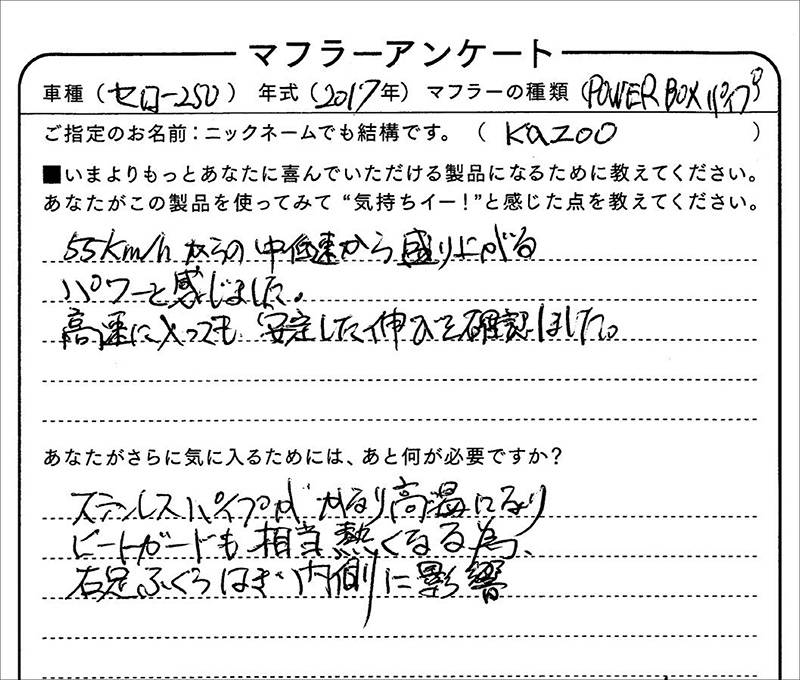 マフラーアンケート
車種（セロー250） 年式（2017年） マフラーの種類（POWER BOXパイプ）
ご指定のお名前：ニックネームでも結構です。（ Kazoo ）
■いまよりもっとあなたに喜んでいただける製品になるために教えてください。
あなたがこの製品を使ってみて“気持ちイー！”と感じた点を教えてください。
55km/hからの中低速から盛り上がる
パワーを感じました。
高速に入っても安定した伸びを確認しました。
あなたがさらに気に入るためには、あと何が必要ですか？
ステンレスパイプがかなり高温になり
ヒートガードも相当熱くなる為、
右足ふくらはぎ内側に影響